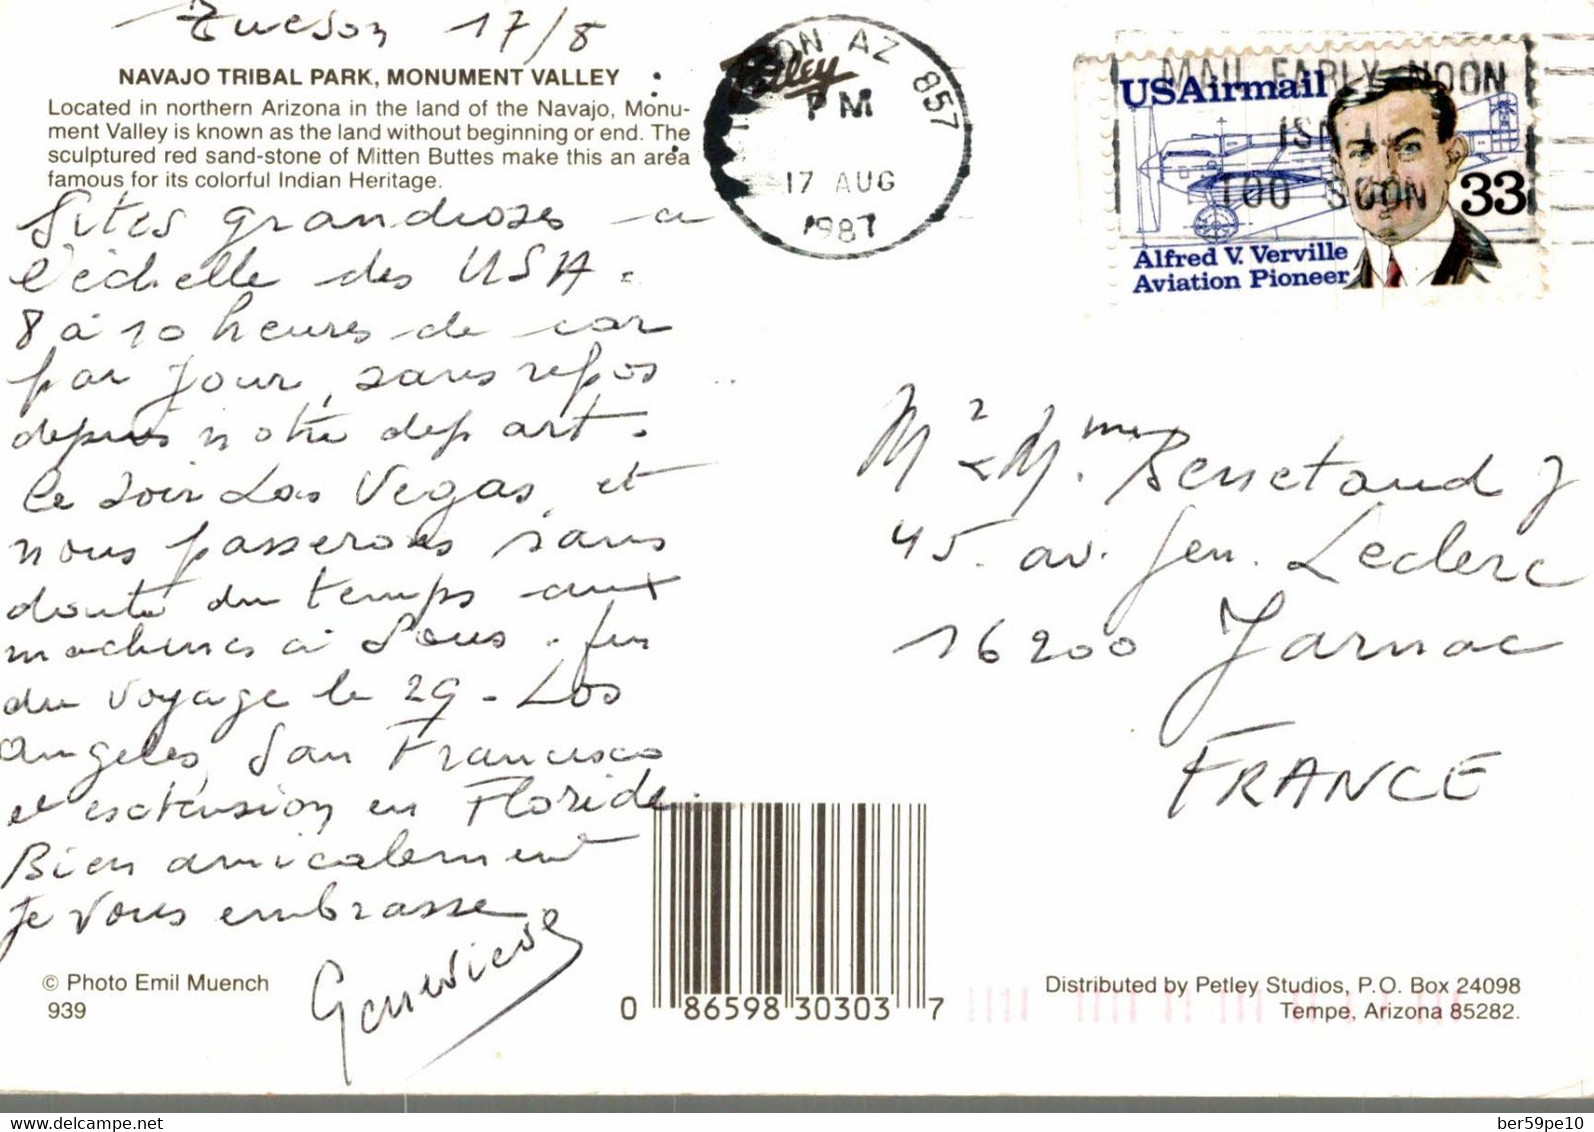 Tucson 17/8
NAVAJO TRIBAL PARK, MONUMENT VALLEY
Located in northern Arizona in the land of the Navajo, Monu-
ment Valley is known as the land without beginning or end. The
sculptured red sand-stone of Mitten Buttes make this an area
famous for its colorful Indian Heritage.
Sites grandioses a
l'échelle des USA.
8 à 10 heures de car
par jour, sans repos
depuis notre départ.
Ce soir Las Vegas, et
nous passerons sans
doute du temps aux
machines à sous. fin
du voyage le 29 - Los
Angeles, San Francisco
et extension en Floride.
Bien amicalement
je vous embrasse
Genevieve
© Photo Emil Muench
939
Petley
ON AZ 857
PM
17 AUG
1987
MAIL EARLY NOON
ISN'T
TOO SOON
USAirmail
33
Alfred V. Verville
Aviation Pioneer
Mr & Mme J
45. av. Gen. Leclerc
16200 Jarnac
FRANCE
0 86598 30303 7
Distributed by Petley Studios, P.O. Box 24098
Tempe, Arizona 85282.
ber59pe10